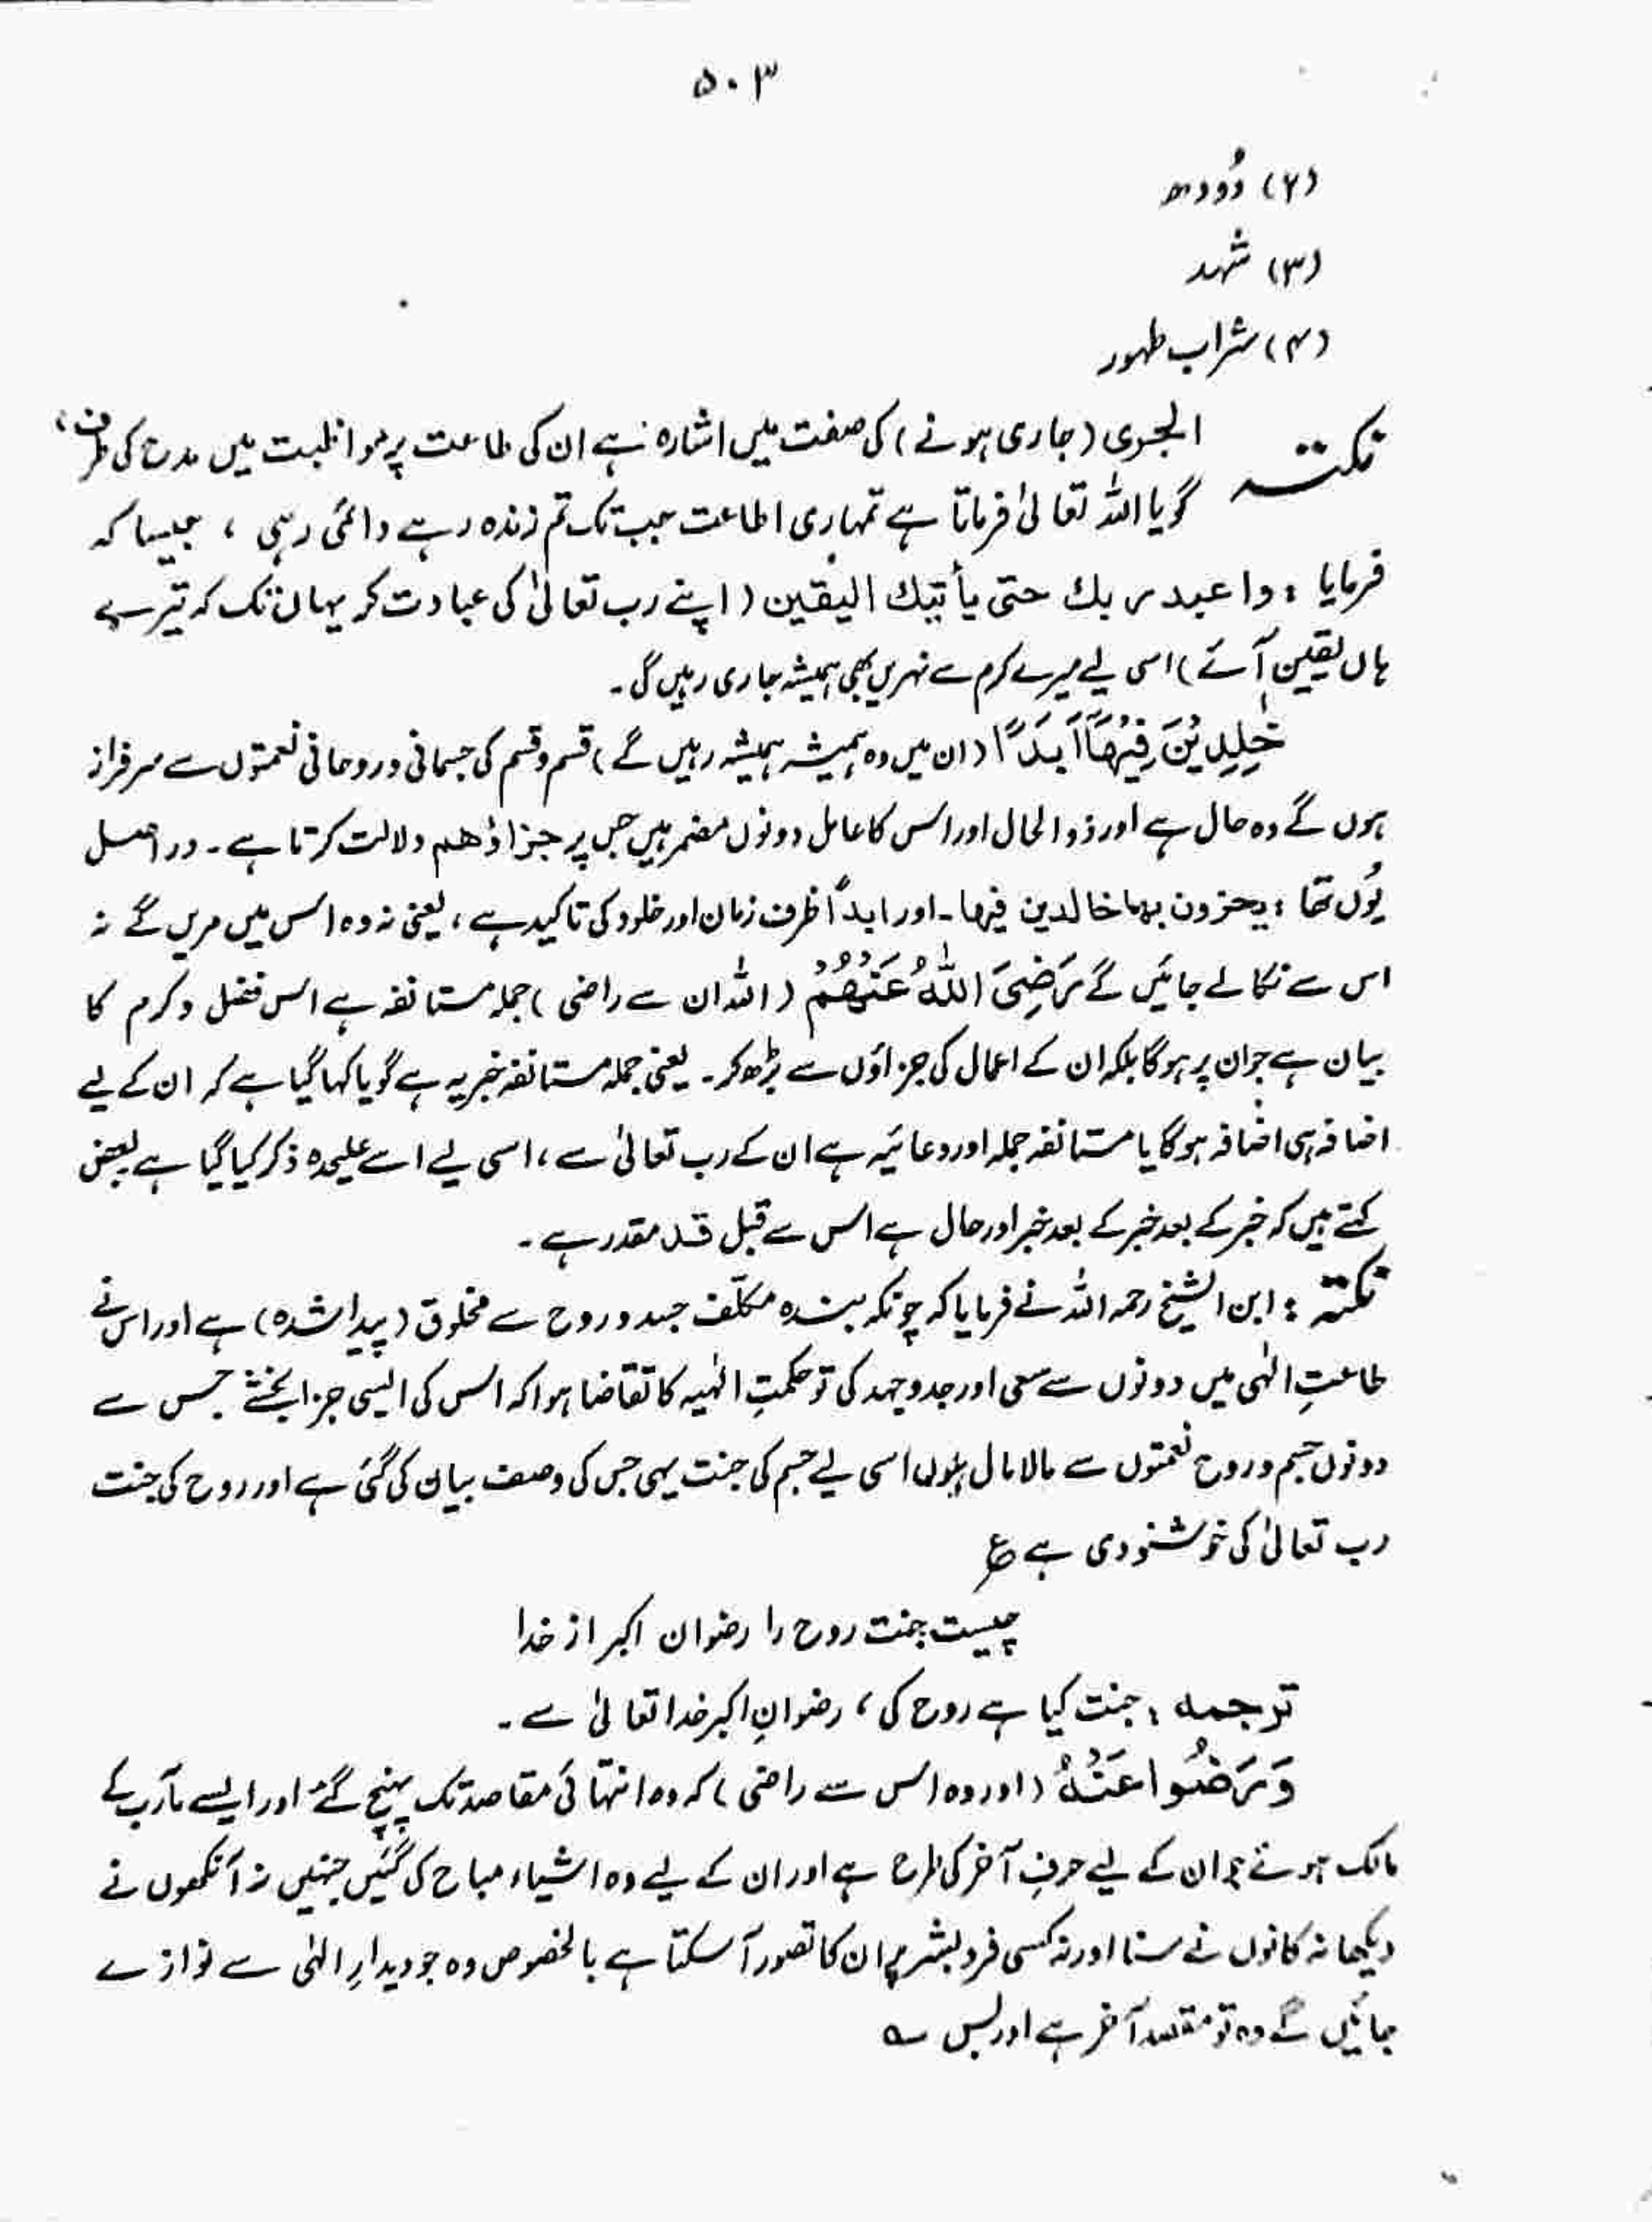 ۵۰۳
(۲) دُودھ
(۳) شہد
(۴) شراب طہور
نکتہ الجری (جاری ہونے) کی صفت میں اشارہ ہے ان کی طاعت پر مواظبت میں مدح کی طرف،
گویا اللہ تعالیٰ فرماتا ہے تمہاری اطاعت جب تک تم زندہ رہے دائمی رہی ، جیسا کہ
فرمایا : واعبد ربك حتى يأتيك اليقين (اپنے رب تعالیٰ کی عبادت کر یہاں تک کہ تیرے
ہاں یقین آئے) اسی لیے میرے کرم سے نہریں بھی ہمیشہ جاری رہیں گی۔
خٰلِدِیْنَ فِیْهَاۤ اَبَدًا (ان میں وہ ہمیشہ ہمیشہ رہیں گے) قسم و قسم کی جسمانی و روحانی نعمتوں سے سرفراز
ہوں گے وہ حال ہے اور ذوالحال اور اس کا عامل دونوں مضمر ہیں جس پر جزاؤھم دلالت کرتا ہے۔ دراصل
یُوں تھا : یجزون بہا خالدین فیہا۔ اور ابداً ظرف زمان اور خلود کی تاکید ہے ، یعنی نہ وہ اس میں مریں گے نہ
اس سے نکالے جائیں گے رَضِیَ اللّٰہُ عَنْھُمْ (اللہ ان سے راضی) جملہ مستانفہ ہے اس فضل و کرم کا
بیان ہے جو ان پر ہوگا بلکہ ان کے اعمال کی جزاؤں سے بڑھ کر۔ یعنی جملہ مستانفہ خبریہ ہے گویا کہا گیا ہے کہ ان کے لیے
اضافہ ہی اضافہ ہوگا یا مستانفہ جملہ اور دعائیہ ہے ان کے رب تعالیٰ سے ، اسی لیے اسے علیحدہ ذکر کیا گیا ہے بعض
کہتے ہیں کہ خبر کے بعد خبر کے بعد خبر اور حال ہے اس سے قبل قد مقدر ہے۔
نکتہ : ابن الشیخ رحمہ اللہ نے فرمایا کہ چونکہ بندہ مکلّف جسد و روح سے مخلوق (پیدا شدہ) ہے اور اس نے
طاعتِ الٰہی میں دونوں سے سعی اور جدوجہد کی تو حکمتِ الٰہیہ کا تقاضا ہوا کہ اس کی ایسی جزا بخشے جس سے
دونوں جسم و روح نعمتوں سے مالا مال ہوں اسی لیے جسم کی جنت یہی جس کی وصف بیان کی گئی ہے اور روح کی جنت
رب تعالیٰ کی خوشنودی ہے ؏
چیست جنت روح را رضوان اکبر از خدا
ترجمہ : جنت کیا ہے روح کی ، رضوانِ اکبر خدا تعالیٰ سے۔
وَرَضُوْا عَنْهُ (اور وہ اس سے راضی) کہ وہ انتہائی مقاصد تک پہنچ گئے اور ایسے مآرب کے
مالک ہوئے جو ان کے لیے حرفِ آخر کی طرح ہے اور ان کے لیے وہ اشیاء مباح کی گئیں جنہیں نہ آنکھوں نے
دیکھا نہ کانوں نے سنا اور نہ کسی فرد بشر پر ان کا تصور آ سکتا ہے بالخصوص وہ جو دیدارِ الٰہی سے نوازے
جائیں گے وہ تو مقصد آخر ہے اور بس ؎